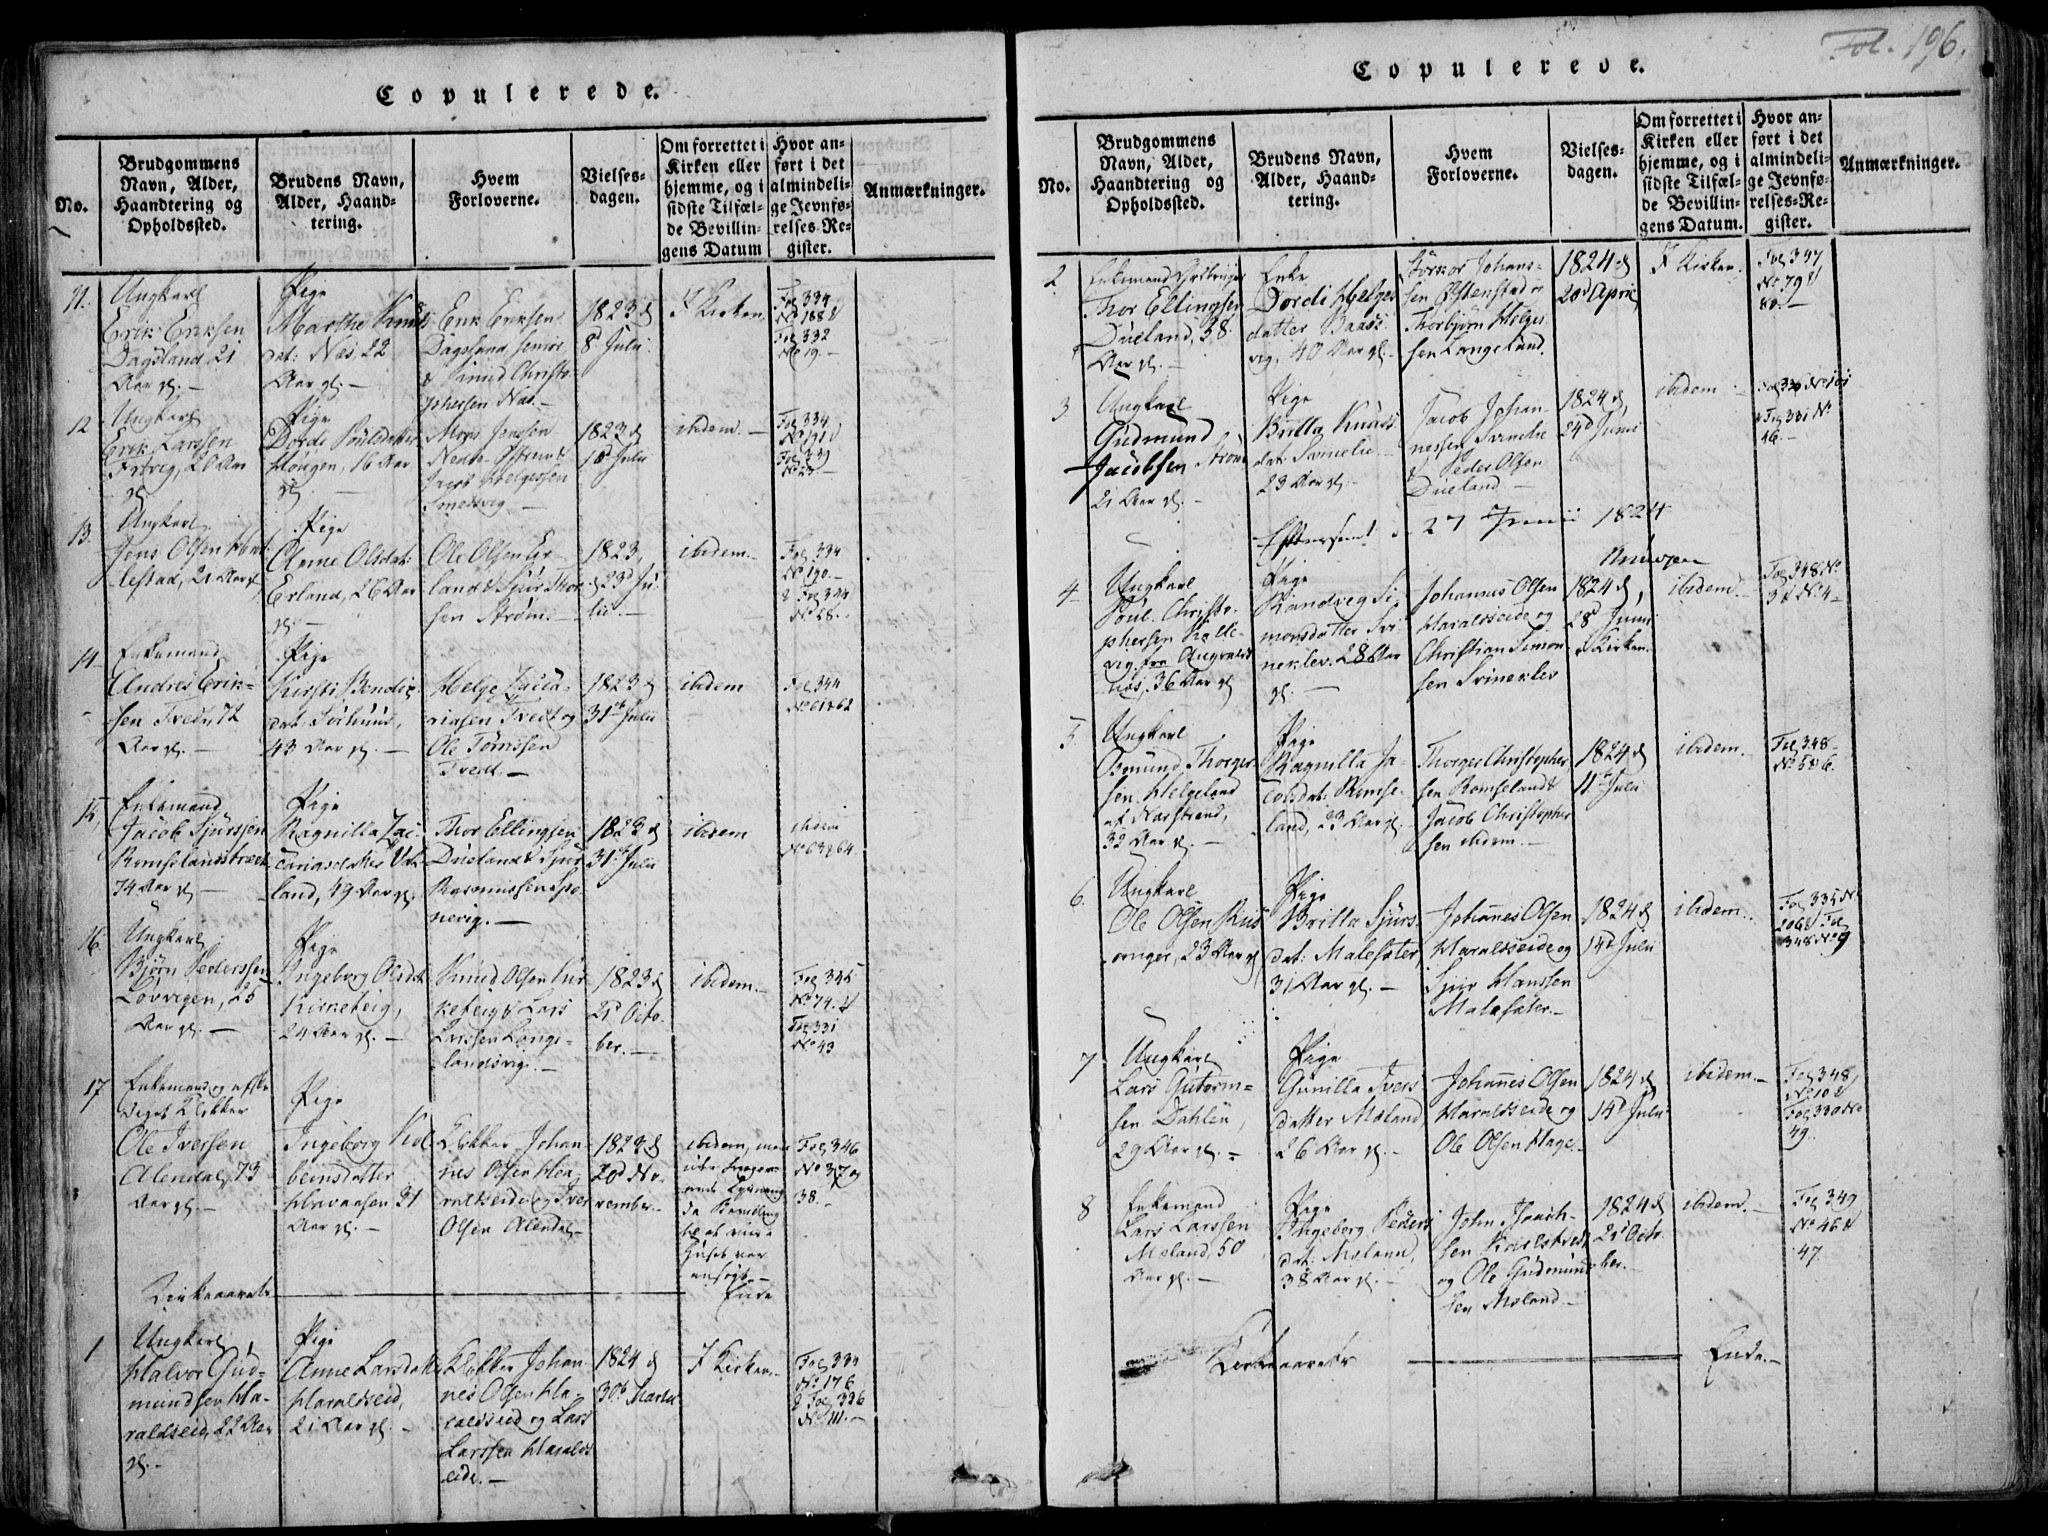 Copulerede.
No.
Brudgommens
Navn, Alder,
Haandtering og
Opholdssted.
Brudens Navn,
Alder, Haand-
tering.
Hvem
Forloverne.
Vielses-
dagen.
Om forrettet i
Kirken eller
hjemme, og i
sidste Tilfæl-
de Bevillin-
gens Datum
Hvor an-
ført i det
almindeli-
ge Jevnfø-
relses-Re-
gister.
Anmærkninger.
11.
Ungkarl
Erik Eriksen
Dagsland 21
Aar gl. -
Pige
Marthe Knuds
dat: Næs, 22
Aar gl. -
Erik Eriksen
Dagsland senior
& Knud Christo-
phersen Næs. -
1823 d
8d Julii
I Kirken
Fol 334
No 188 &
Fol 332
No 19. -
12
Ungkarl
Erik Larssen
20 Aar
gl.
Pige
Dordi Poulsdatter
Hougen, 16 Aar
gl. -
Mons Jenssen
Jacob Helgessen
Smedsvig -
1823 d
10d Julii
ibidem. -
Fol 334
No 191 &
13.
Ungkarl
Jens Olsen
21 Aar gl.
Pige
Anne Olsdat:
Erland, 26 Aar
gl. -
Ole Olsen Er-
land & Sjur Thor-
sen Strøm. -
1823,
d 23d Ju-
lii. -
ibidem. -
Fol 334
No 190. -
& Fol 344
No 28. -
14
Enkemand
Andres Erik-
sen Tvedt, 72
Aar gl. -
Pige
Kirsti Bendix-
dat: Sørhuus,
43 Aar gl. -
Helge Zacca-
riasen Tvedt og
Ole Tørrissen
Tvedt. -
1823 d
31te Julii
ibidem
Fol 344
No 61 & 62
15,
Enkemand
Jacob Sjurssen
Romselandstræet
74 Aar gl. -
Pige
Ragnilla Zac-
cariasdatter
land, 49 Aar gl.
Thor Ellingsen
Dueland & Sjur
Rasmussen
nevig. -
1823 d
31te Julii
ibidem
ibidem
No 63 & 64.
16.
Ungkarl
Bjørn Pederssen
Løvvigen, 25
Aar gl. -
Pige
Ingeborg Olsdat
Kirketeig,
24 Aar gl. -
Knud Olsen Kir-
keteig & Lars
Larssen Lange-
landsvig. -
1823 d
21 Octo-
ber. -
ibidem. -
Fol 345
No 74. &
Fol 331
No 43
17
Enkemand og afske-
diget Klokker
Ole Iversen
Alendal, 73
Aar gl. -
Pige
Ingeborg Kol-
beinsdatter
Havaasen 31
Aar gl. -
Klokker Johan-
nes Olsen Ha-
raldseide og Iver
Olsen Alendal -
1823 d
20d No-
vember. -
Fol 346
No 37 og
38. -
Kirkeaarets
Ende
1
Ungkarl,
Halvor Gud-
mundsen Ha-
raldseid, 22 Aar
gl. -
Pige
Anne Larsdatter
Haraldseid,
21 Aar gl. -
Klokker Johan-
nes Olsen Ha-
raldseid og Lars
Larssen Haralds
eide. -
1824 d
30te Martii
I Kirken. -
Fol 334
No 176
& Fol 336
No 111. -
Fol. 196.
Copulerede.
No.
Brudgommens
Navn, Alder,
Haandtering og
Opholdssted.
Brudens Navn,
Alder, Haand-
tering.
Hvem
Forloverne.
Vielses-
dagen.
Om forrettet i
Kirken eller
hjemme, og i
sidste Tilfæl-
de Bevillin-
gens Datum.
Hvor an-
ført i det
almindeli-
ge Jevnfø-
relses-Re-
gister.
Anmærkninger.
2
Thor Ellingsen
Dueland, 38
Aar gl. -
Enke
Dordi Helges
datter Baads-
vig, 40 Aar gl. -
Størkor Johans-
sen Østenstad &
Thorbjørn Helges
sen Langeland.
1824 d
20d April
I Kirken.
Fol 347
No 79 &
80. -
3
Ungkarl
Gudmund
Jacobsen Strøm
21 Aar gl. -
Pige
Britta Knuds
dat: Svinelie
23 Aar gl. -
Jacob Johan-
nessen Svinelie
& Peder Olsen
Dueland -
1824 d,
24d Junii
ibidem -
Fol 336 No 101
& Fol 331 No
46. -
27 Junii 1824
4
Ungkarl
Poul Christo-
phersen Kolle-
vig. fra Augvalds
næs, 36 Aar gl
Pige
Randveg Si-
monsdatter Svi-
neklev. 28 Aar
gl. -
Johannes Olsen
Haraldseide og
Christian Simon-
sen Svineklev
1824 d,
28d Junii
i Kirken.
ibidem. -
Fol 348 No
3 & No 4 -
5.
Ungkarl
Osmund Thorger
sen Helgeland
af Nærstrand,
32 Aar gl. -
Pige
Ragnilla Ja-
cobsdat: Romse-
land, 23 Aar gl. -
Thorger Christopher
sen Romseland &
Jacob Christopher
sen ibidem. -
1824 d
11te Julii
ibidem. -
Fol 348 -
No 5 & 6.
6.
Ungkarl
Ole Olsen Rus
vanger, 23 Aar gl
Pige
Britta Sjurs-
dat: Malesæter,
31 Aar gl. -
Johannes Olsen
Haraldseide og
Sjur Hanssen
Malesæter. -
1824 d
14d Julii
ibidem. -
Fol 335 No
206 & Fol
348 No 9
7
Ungkarl
Lars Gutorm-
sen Dahlen,
29 Aar gl. -
Pige
Gunilla Ivers
datter Mæland
26 Aar gl. -
Johannes Olsen
Haraldseide og
Ole Olsen Hage. -
1824 d
14d Julii
ibidem. -
Fol 348,
No 10 &
Fol 330 No
49.
8
Enkemand
Lars Larssen
Mæland, 50
Aar gl. -
Pige
Ingeborg Peders
dat: Mæland,
38 Aar gl. -
John
sen
og Ole Gudmund
sen Mæland. -
1824 d
21 Octo-
ber. -
ibidem. -
Fol 349
No 46 &
47.
Kirkeaarets
Ende. -